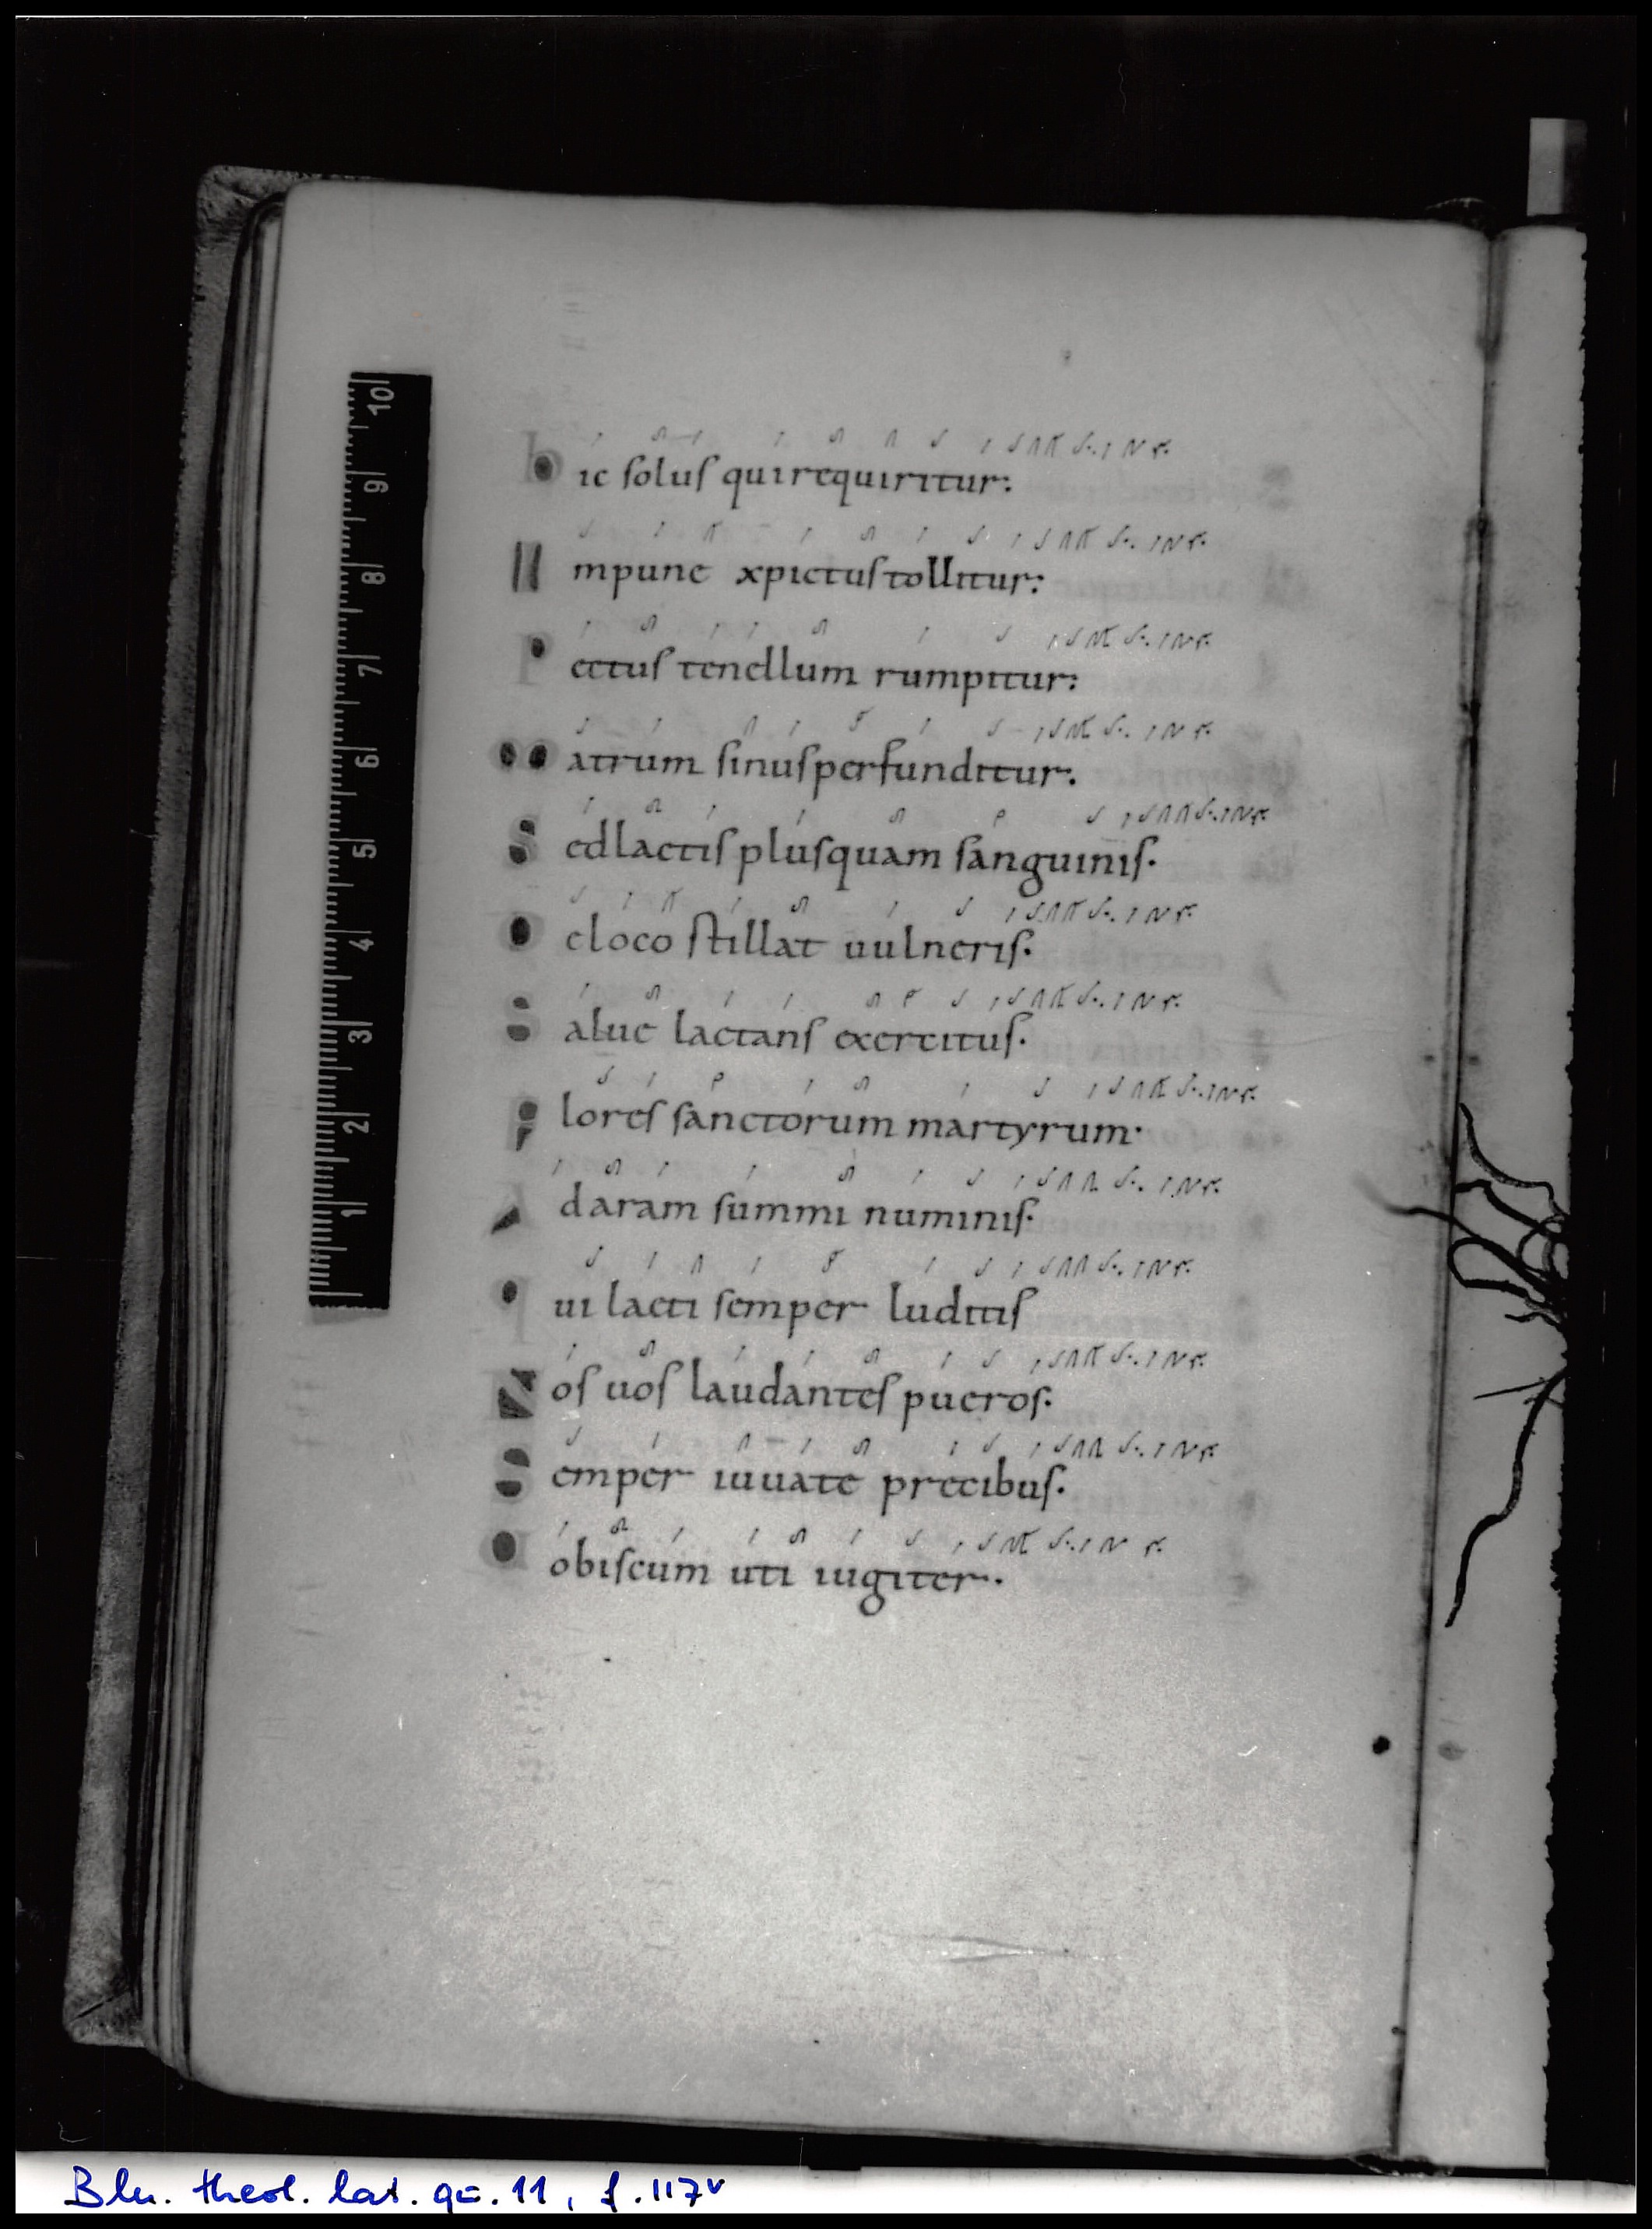 hic solus qui requiritur:
Impune xpictus tollitur:
Pectus tenellum rumpitur:
Matrum sinus perfunditur:
Sed lactis plus quam sanguinis.
E loco stillat uulneris.
Salue lactans exercitus.
Flores sanctorum martyrum.
Ad aram summi numinis.
Qui lacti semper luditis
Nos uos laudantes pueros.
Semper iuuate precibus.
Uobiscum uti iugiter.
10
9
8
7
6
5
4
3
2
1
Bln. theol. lat. qu. 11, f. 117v